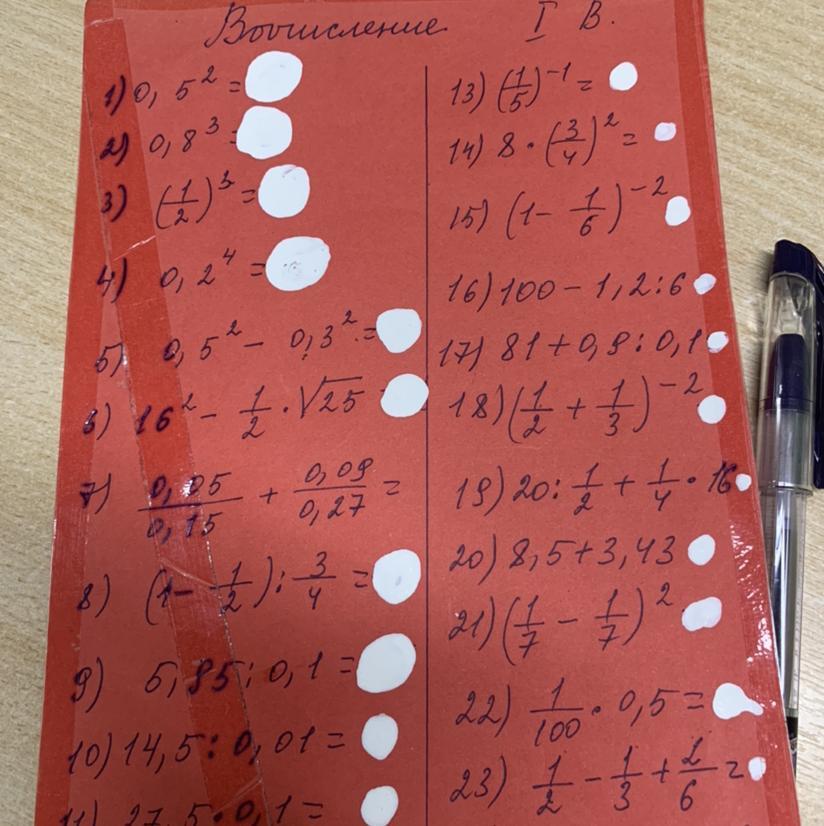 Вычисление I В.
1) 0,5² =
2) 0,8³ =
3) (1/2)³ =
4) 0,2⁴ =
5) 0,5² - 0,3² =
6) 16² - 1/2 · √25
7) 0,05/0,15 + 0,09/0,27 =
8) (1 - 1/2) : 3/4 =
9) 5,85 : 0,1 =
10) 14,5 : 0,01 =
11) 27,5 · 0,1 =
13) (1/5)⁻¹ =
14) 8 · (3/4)² =
15) (1 - 1/6)⁻²
16) 100 - 1,2 : 6
17) 81 + 0,9 : 0,1
18) (1/2 + 1/3)⁻²
19) 20 : 1/2 + 1/4 · 16
20) 8,5 + 3,43
21) (1/7 - 1/7)²
22) 1/100 · 0,5 =
23) 1/2 - 1/3 + 1/6 =